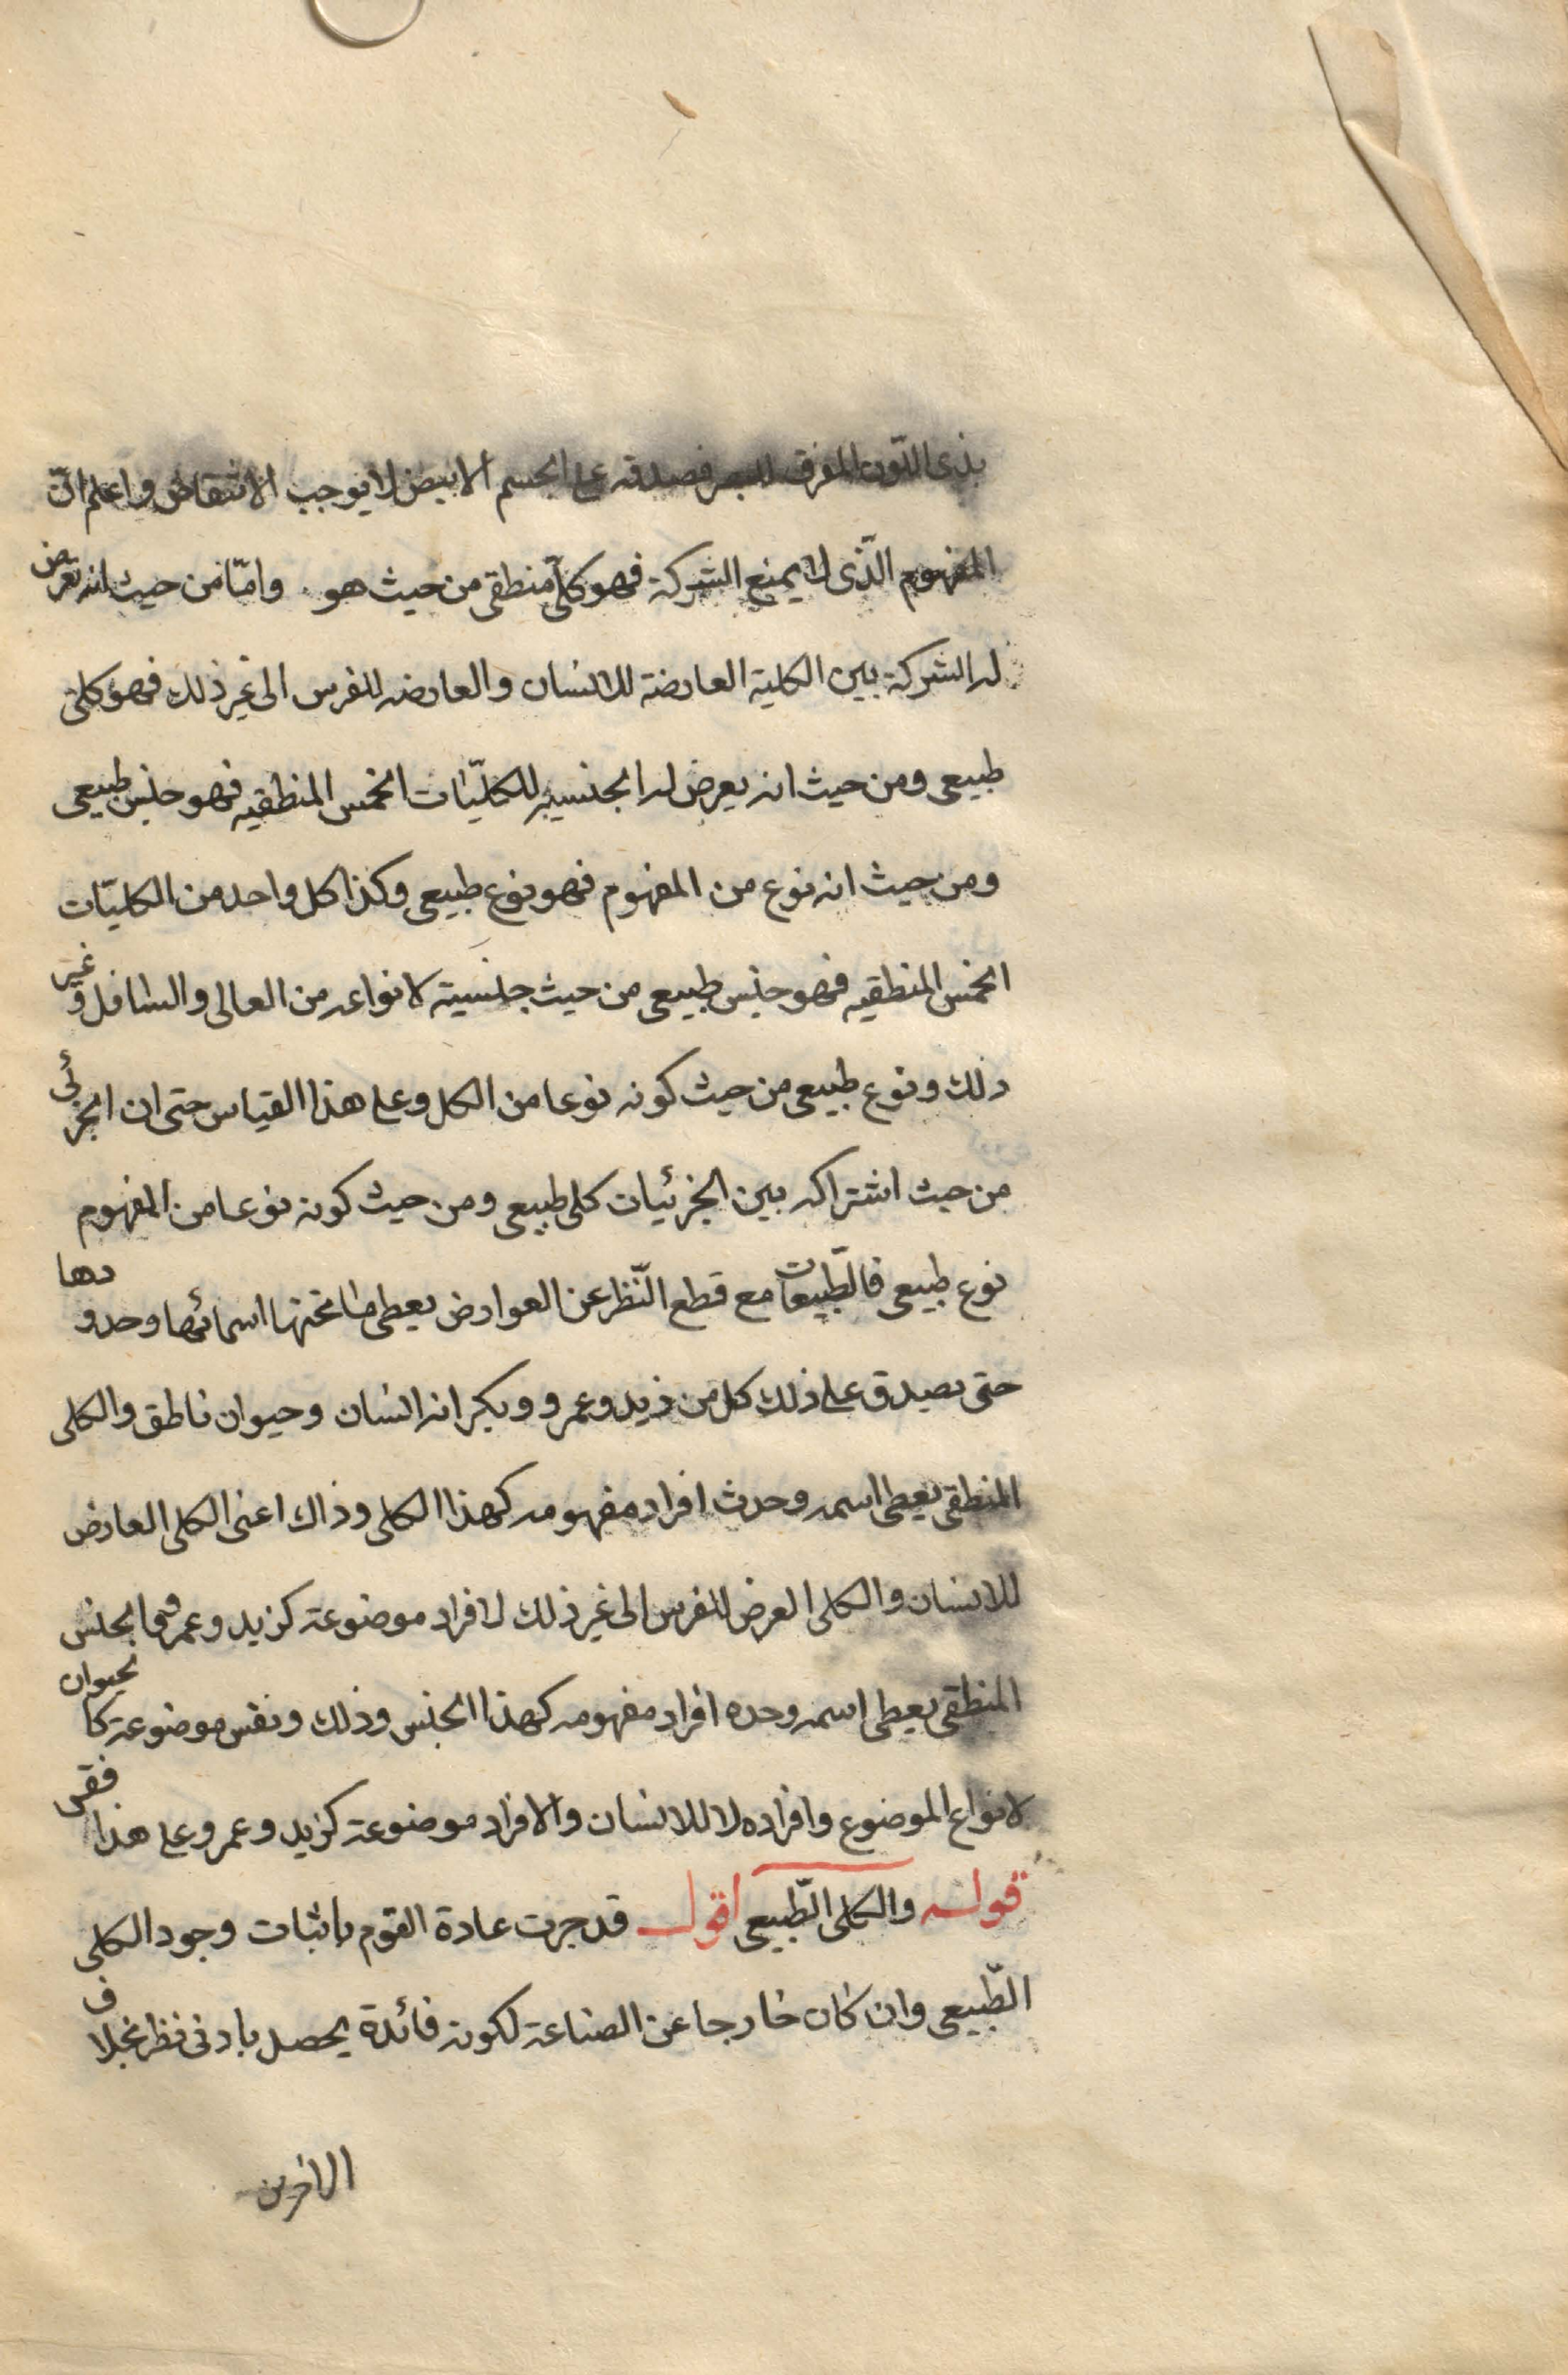 بذى اللّون المفرق للبصر فصدقه على الجسم الابيض لا يوجب الانتقاض واعلم انّ
المفهوم الّذى لا يمنع الشركة فهو كلّى منطقى من حيث هو وامّا من حيث انه يعرض
له الشركة بين الكلية العارضة للانسان والعارضه للفرس الى غير ذلك فهو كلى
طبيعى ومن حيث انه يعرض له الجنسيه للكليّات الخمس المنطقيه فهو جنس طبيعى
ومن حيث انه نوع من المفهوم فهو نوع طبيعى وكذا كل واحد من الكليّات
الخمس المنطقيه فهو جنس طبيعى من حيث جنسية لانواعه من العالى والسافل وغير
ذلك ونوع طبيعى من حيث كونه نوعا من الكل وعلى هذا القياس حتى ان الجزئى
من حيث اشتراكه بين الجزئيات كلى طبيعى ومن حيث كونه نوعا من المفهوم
نوع طبيعى فالطّبيعات مع قطع النّظر عن العوارض يعطى ما تحتها اسمائها وحدودها
حتى يصدق على ذلك كل من زيد وعمرو وبكر انه انسان وحيوان ناطق والكلى
المنطقى يعطى اسمه وحدث افراد مفهومه كهذا الكلى وذاك اعنى الكلى العارض
للانسان والكلى العرض للفرس الى غير ذلك لا فراد موضوعة كزيد وعمر فى الجنس
المنطقى يعطى اسمه وحده افراد مفهومه كهذا الجنس وذلك ونفس موضوعة كالحيوان
لانواع الموضوع وافراده لا للانسان والافراد موضوعة كزيد وعمرو وعلى هذا فقس
قوله والكلى الطّبيعى اقول قد جرت عادة القوم باثبات وجود الكلى
الطّبيعى وان كان خارجا عن الصناعة لكونه فائدة يحصل بادنى نظر بخلاف
الاخرين